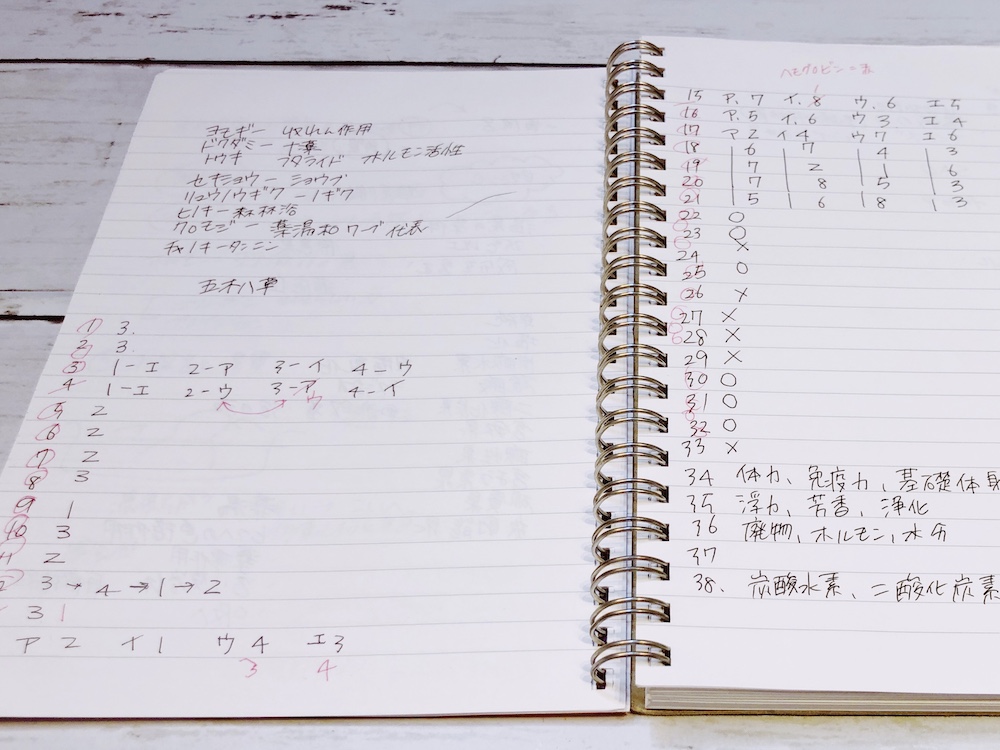 ヨモギー 収れん作用
ドクダミー 十薬
トウキ フタライド ホルモン活性
セキショウー ショウブ
リュウノウギクーノギク
ヒノキー森林浴
クロモジー 薬湯和ハーブ代表
チャノキータンニン
五木八草
① 3.
② 3.
③ 1-エ 2-ア 3-イ 4-ウ
4 1-エ 2-ウ 3-ア 4-イ
ウ
⑤ 2
⑥ 2
⑦ 2
⑧ 3
⑨ 1
⑩ 3
11 2
3→4→1→2
3 1
ア 2 イ 1 ウ 4 エ 3
3 4
ヘモグロビン一表
15 ア.7 イ.8 ウ.6 エ5
16 ア.5 イ.6 ウ3 エ4
17 ア2 イ4 ウ7 エ6
18 | 6 | 7 | 4 | 3
19 | 7 | 2 | 1 | 6
20 | 7 | 8 | 5 | 3
21 | 5 | 6 | 8 | 3
22 ○
23 ○
24 ×
25 ○
26 ×
27 ×
28 ×
29 ×
30 ○
31 ○
32 ○
33 ×
34 体力、免疫力、基礎体
35 浮力、芳香、浄化
36 廃物、ホルモン、水分
37
38. 炭酸水素、二酸化炭素